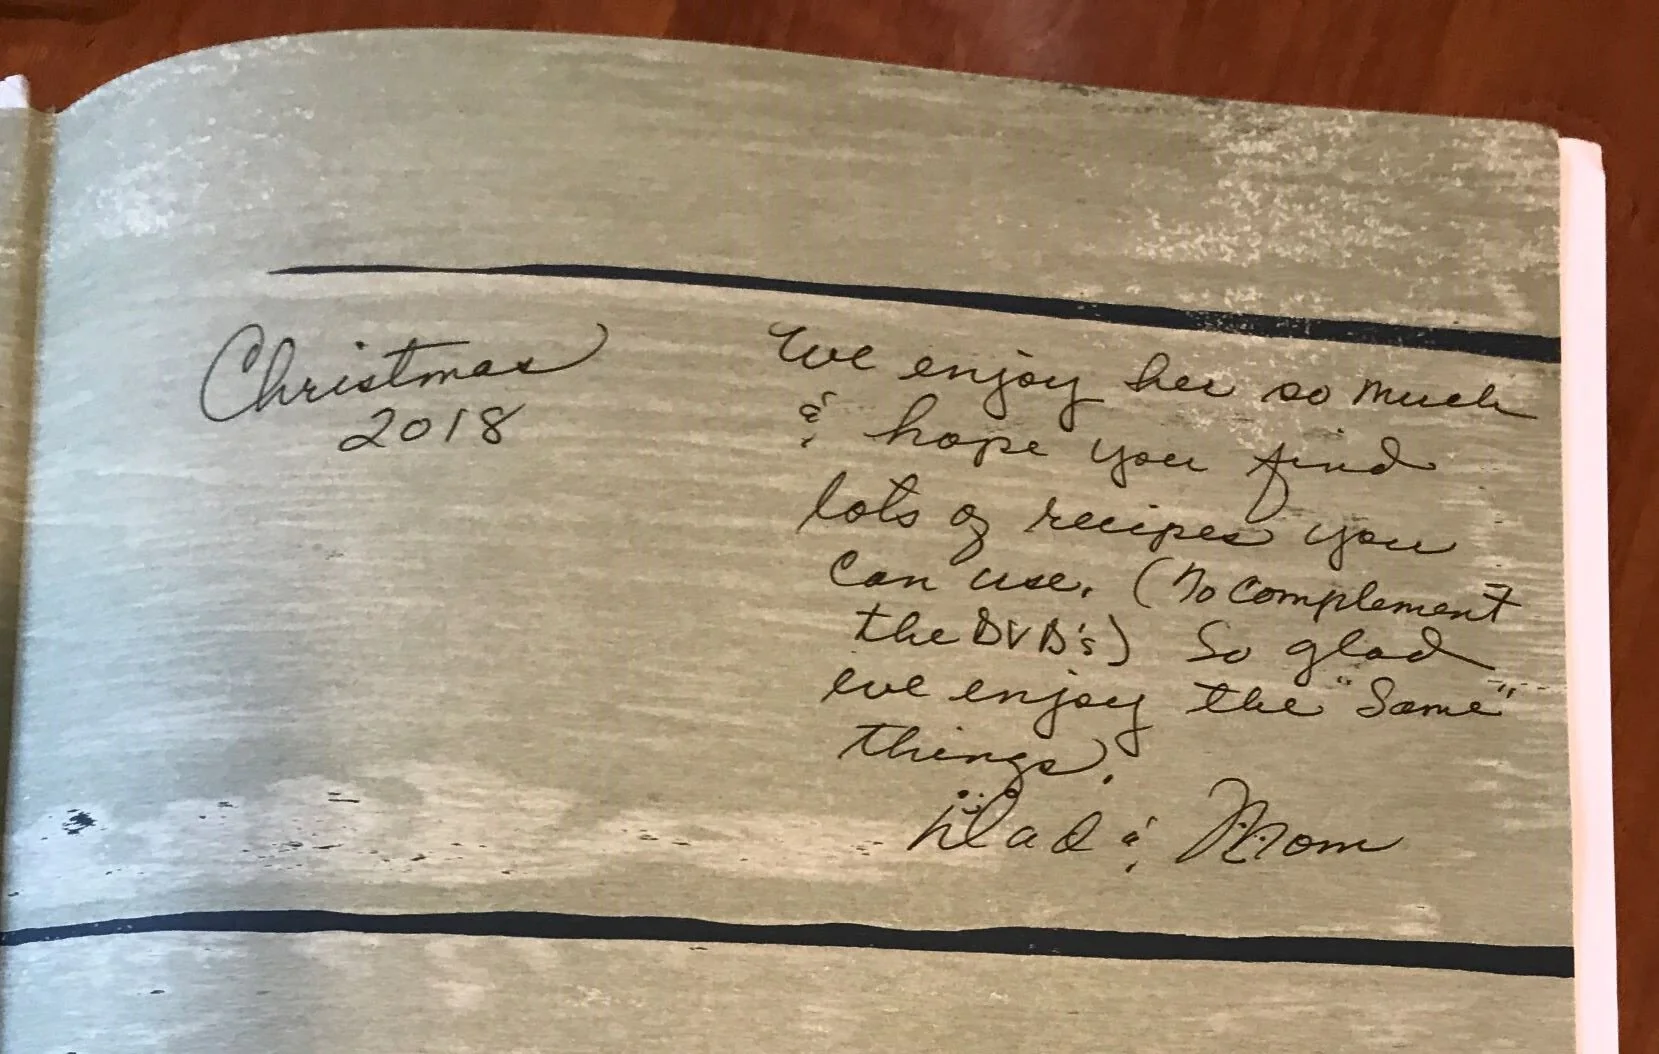 Christmas
2018
We enjoy her so much
& hope you find
lots of recipes you
can use. (To complement
the DVD's) So glad
we enjoy the "Same"
things.
Dad & Mom